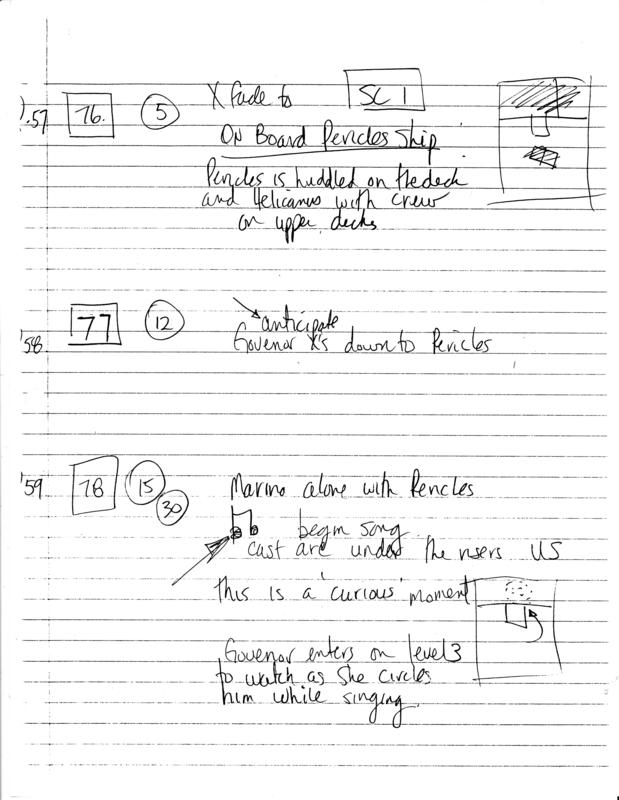 ).57 76. 5 X fade to SC 1
ON Board Pericles Ship
Pericles is huddled on the deck
and Helicanus with crew
on upper decks
'58 77 12 anticipate
Govenor X's down to Pericles
'59 78 15 30 Marina alone with Pericles
begin song
cast are under the risers US
this is a 'curious' moment
Govenor enters on level 3
to watch as she circles
him while singing.